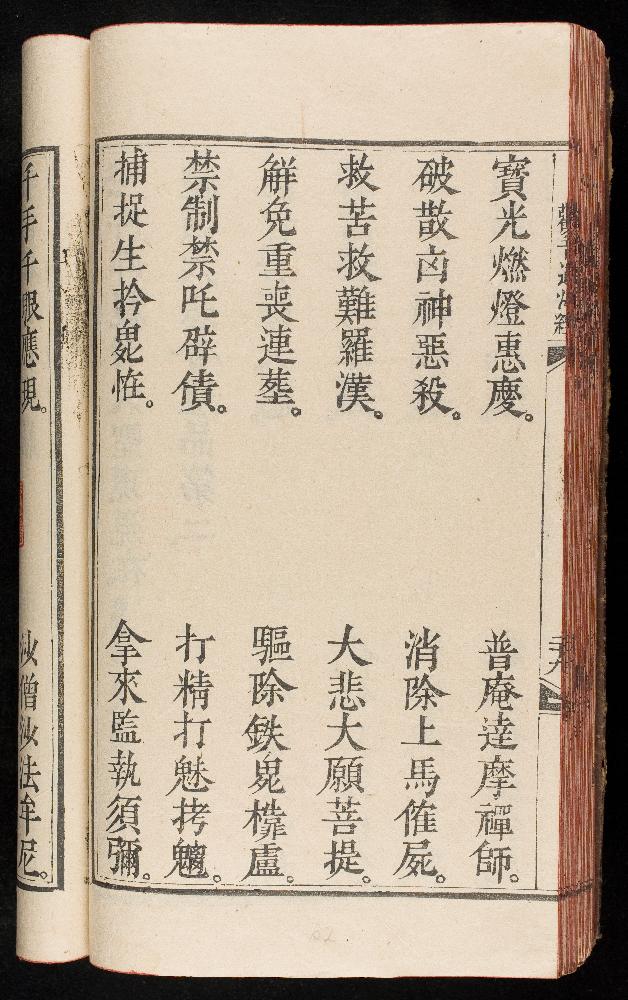 寶光燃燈惠慶。
普庵達摩禪師。
破散凶神惡殺。
消除上馬傕屍。
救苦救難羅漢。
大悲大願菩提。
解免重喪連塟。
驅除鉄鬼櫳盧。
禁制禁吒辟債。
打精打魅拷魑。
捕捉生拎鬼恠。
拿來監執須彌。
千手千眼應現。
妙僧妙法牟尼。